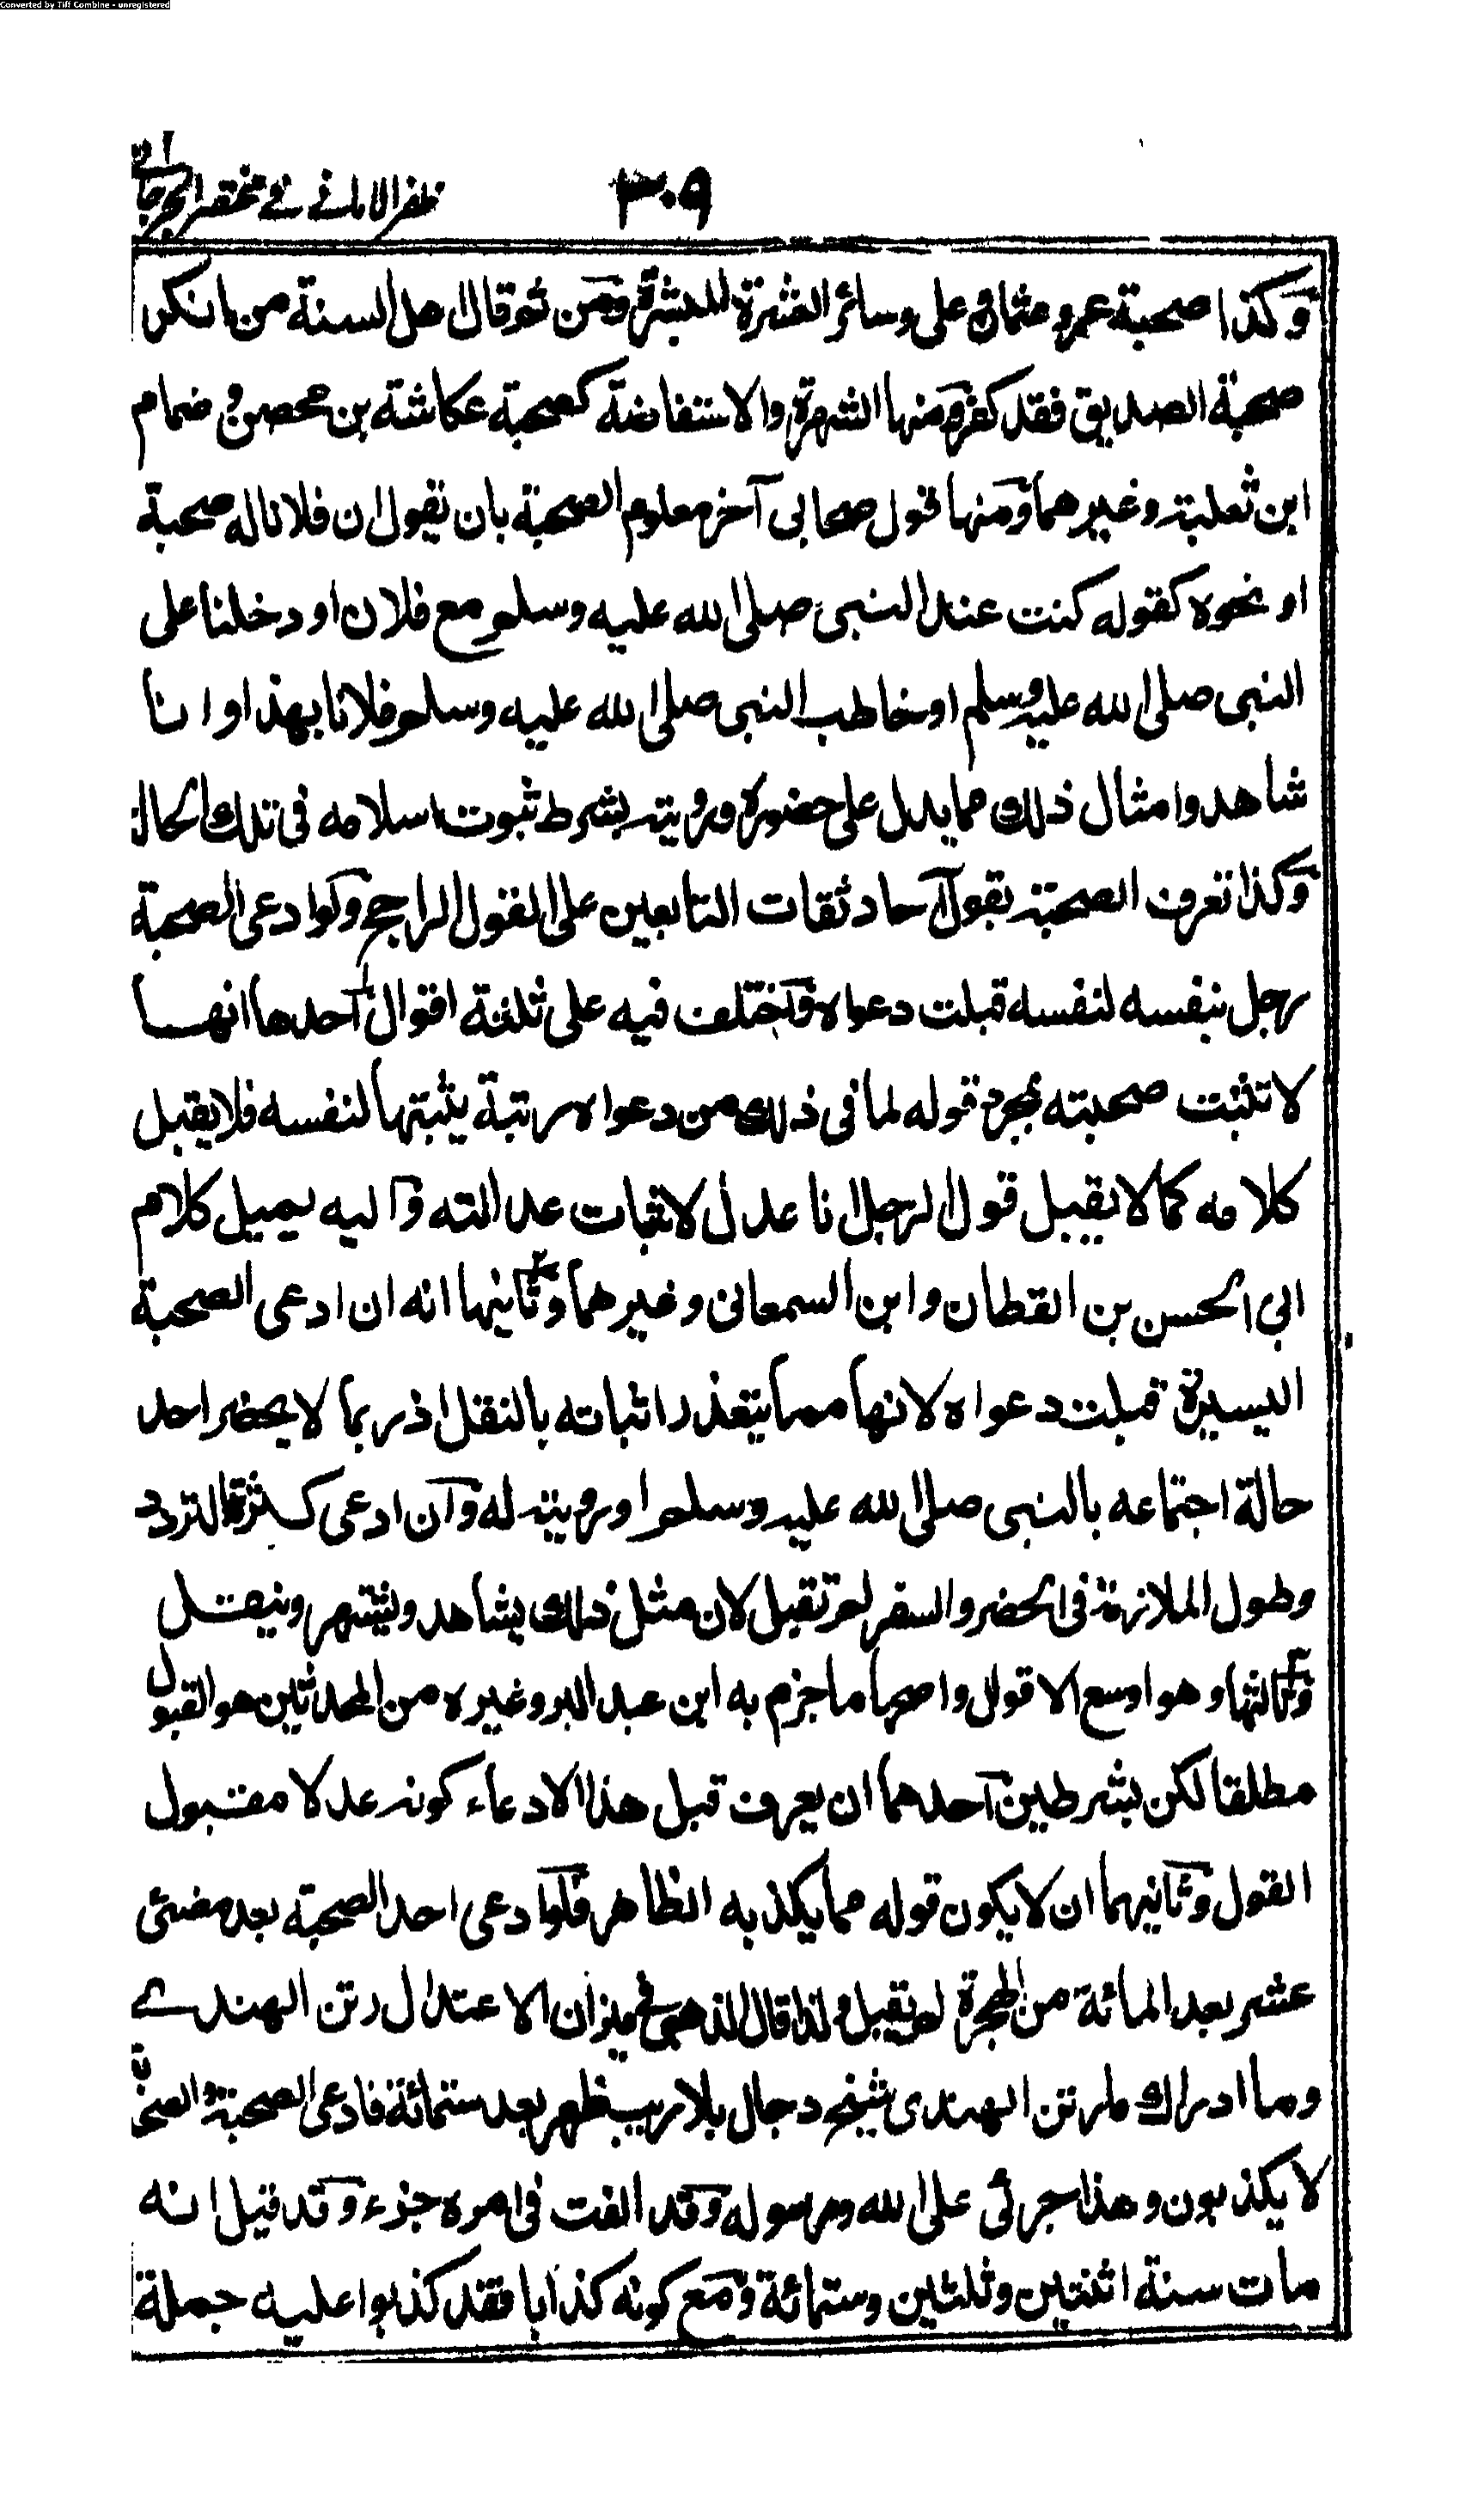 Converted by Tiff Combine - unregistered
ظفر الامانے فے مختصر الجرجانی
٣٠٩
وكذا صحبة عمر وعثمان وعلى وسائر العشرة المبشرة ومن ثم قال اهل السنة من انكر
صحبة الصديق فقد كفر ومنها الشهرة والاستفاضة كصحبة عكاشة بن محصن وضمام
ابن ثعلبة وغيرهما ومنها قول صحابى آخر معلوم الصحبة بان يقول ان فلانا له صحبة
او نحوه كقوله كنت عند النبى صلى الله عليه وسلم مع فلان او دخلنا على
النبى صلى الله عليه وسلم او خاطب النبى صلى الله عليه وسلم فلانا بهذا وانا
شاهد وامثال ذلك مما يدل على حضوره ورويته بشرط ثبوت اسلامه فى تلك الحالة
وكذا تعرف الصحبة بقول آحاد ثقات التابعين على القول الراجح ولو ادعى الصحبة
رجل بنفسه لنفسه قبلت دعواه واختلف فيه على ثلثة اقوال احدها انهسا
لا تثبت صحبته بمجرد قوله لما فى ذلك من دعواه مرتبة يثبتها لنفسه فلا يقبل
كلامه كما لا يقبل قول الرجل انا عدل لاثبات عدالته واليه يميل كلام
ابى الحسن بن القطان وابن السمعانى وغيرهما وثانيها انه ان ادعى الصحبة
اليسيرة قبلت دعواه لانها مما يتعذر اثباته بالنقل اذ ربما لا يحضر احد
حالة اجتماعه بالنبى صلى الله عليه وسلم او رويته له وان ادعى كثرة التردد
وطول الملازمة فى الحضر والسفر لم تقبل لان مثل ذلك يشاهد ويشتهر وينقل
وثالثها وهو اوسع الاقوال واصحها ما جزم به ابن عبد البر وغيره من المحدثين هو القبول
مطلقا لكن بشرطين احدهما ان يعرف قبل هذا الادعاء كونه عدلا مقبول
القول وثانيهما ان لا يكون قوله مما يكذبه الظاهر فلو ادعى احد الصحبة بعد مضى
عشر بعد المائة من الهجرة لم يقبل ولذا قال الذهبى فى ميزان الاعتدال رتن الهندے
وما ادراك ما رتن الهندى شيخ دجال بلا ريب ظهر بعد ستمائة فادعى الصحبة والصحابة
لا يكذبون وهذا جرئ على الله ورسوله وقد الفت فى امره جزء وقد قيل انه
مات سنة اثنتين وثلثين وستمائة ومع كونه كذابا فقد كذبوا عليه جملة